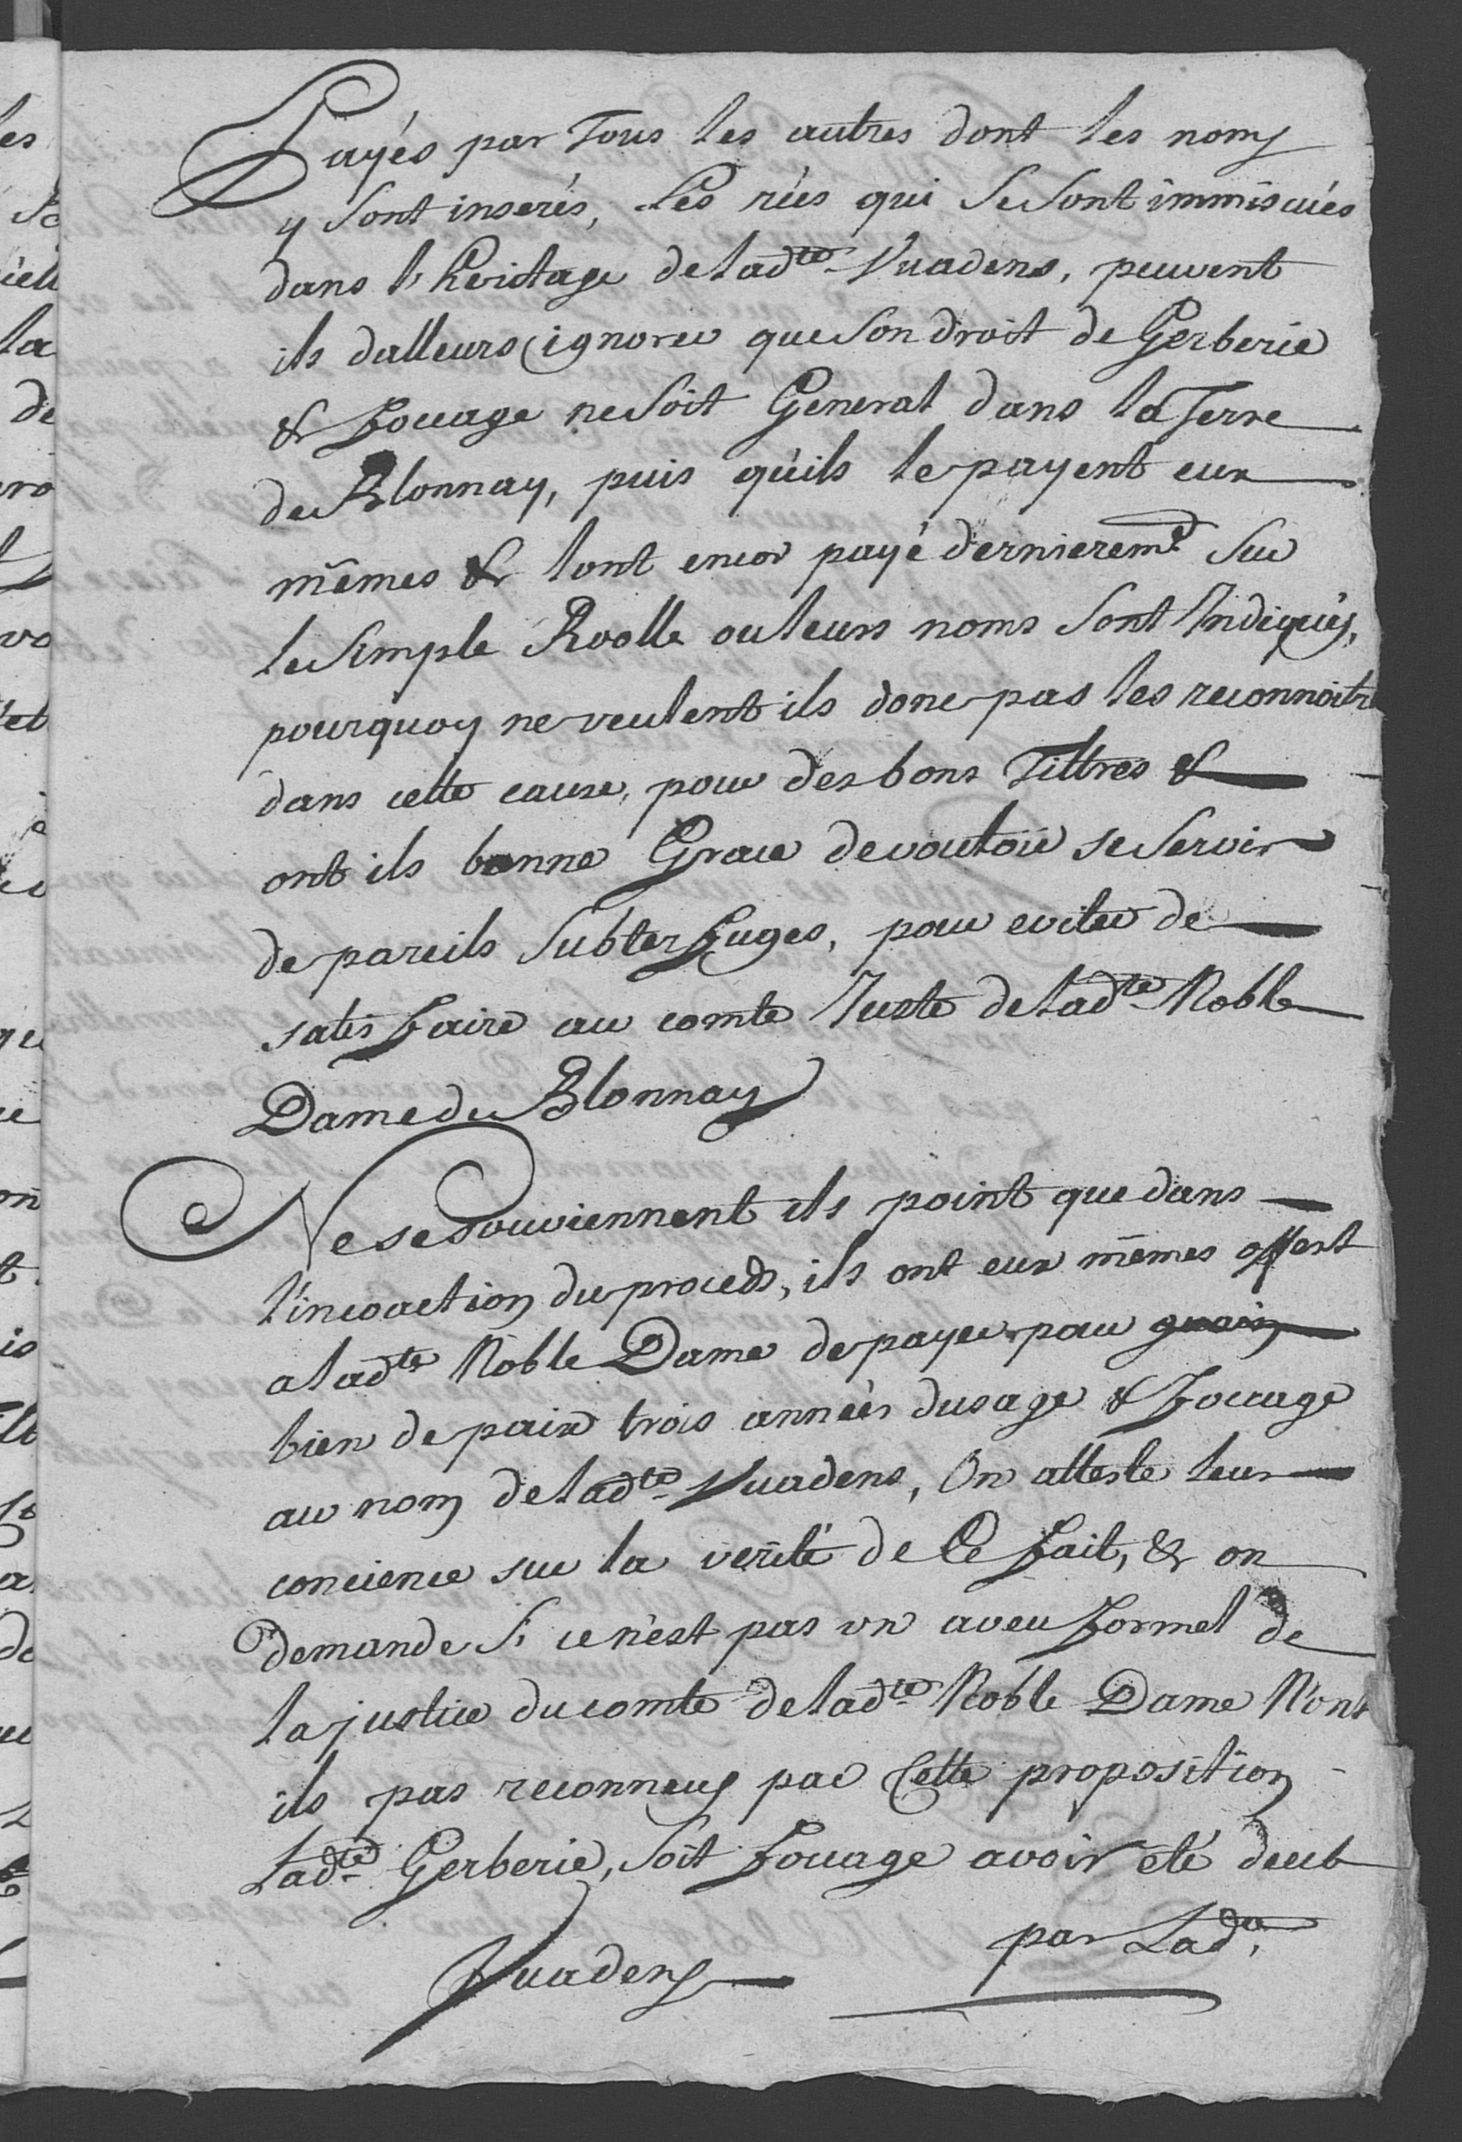 Payés par Tous les autres dont les noms
y sont inserés, Les rées qui se sont immiscués
dans l'heritage de lad.te Vuadens, peuvent
ils dalleurs ignorer que son droit de Gerberie
& Fouage ne soit General dans la Terre
de Blonnay, puis qu'ils le payent eux
mêmes & lont encor payé dernierem.t sur
le simple Roolle ou leurs noms sont Indiqués,
pourquoy ne veulent ils donc pas les reconnoitre
dans cette cause, pour des bons Tiltres &
ont ils bonne Grace de vouloir se servir
de pareils subterfuges, pour eviter de
satisfaire au comte Juste de lad.te Noble
Dame de Blonnay
Ne se souviennent ils point que dans
l'incoaction du proceds, ils ont eux mêmes offert
a lad.te Noble Dame de payer pour
bien de paix trois années dusage & Fouage
au nom de lad.te Vuadens, On atteste leur
concience sur la verité de Ce fait, & on
demande si ce n'est pas un aveu formel de
la justice du comte de lad.te Noble Dame N'ont
ils pas reconneus par Cette proposition
Lad.te Gerberie, soit Fouage avoir eté deub
par Lad.te
Vuadens